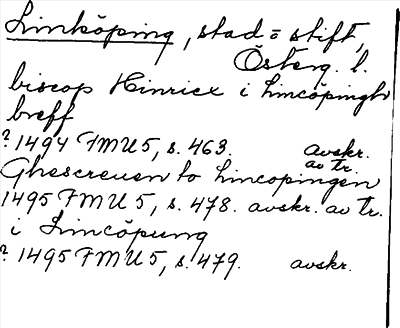 Linköping, stad = stift,
Österg. l.
biscop Hinricx i Lincöpingh
breff
? 1494 FMU 5, s. 463. avskr.
av tr.
Ghescreuen to Lincopingen
1495 FMU 5, s. 478. avskr. av tr.
i Lincöpung
? 1495 FMU 5, s. 479. avskr.